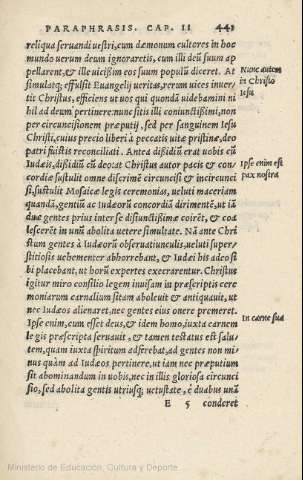 PARAPHRASIS. CAP. II 441
reliqua seruandi uestri, cum dæmonum cultores in hoc
mundo uerum deum ignoraretis, cum illi deũ suum ap
pellarent, & ille uicißim eos suum populũ diceret. At
simulatq; effulsit Euangelij ueritas, rerum uices inuer-
tit Christus, efficiens ut uos qui quondã uidebamini ni
hil ad deum pertinere: nunc sitis illi coniunctißimi, non
per circuncisionem præputij, sed per sanguinem Iesu
Christi, cuius precio liberi à peccatis uitæ pristinæ, deo
patri fuistis reconciliati. Antea dißidiũ erat uobis cũ
Iudæis, dißidiũ cũ deo: at Christus autor pacis & con-
cordiæ sustulit omne discrimẽ circuncisi & incircunci
si, sustulit Mosaicæ legis ceremonias, ueluti maceriam
quandã, gentiũ ac Iudæorũ concordiã dirimentẽ, ut iã
duæ gentes prius inter se disiunctißimæ coirẽt, & coa
lescerẽt in unũ abolita uetere simultate. Nã ante Chri
stum gentes à Iudæorũ obseruatiunculis, ueluti super-
stitiosis uehementer abhorrebant, & Iudæi his adeo si
bi placebant, ut horũ expertes execrarentur. Christus
igitur miro consilio legem inuisam in præscriptis cere
moniarum carnalium sitam aboleuit & antiquauit, ut
nec Iudæos alienaret, nec gentes eius onere premeret.
Ipse enim, cum esset deus, & idem homo, iuxta carnem
legis præscripta seruauit, & tamen testatus est salu-
tem, quam iuxta spiritum adferebat, ad gentes non mi-
nus quàm ad Iudæos pertinere, ut iam nec præputium
sit abominandum in uobis, nec in illis gloriosa circunci
sio, sed abolita gentis utriusq; uetustate, è duabus unã
E 5 conderet
Nunc autem
in Christo
Iesu
Ipse enim est
pax nostra
In carne sua
Ministerio de Educación, Cultura y Deporte